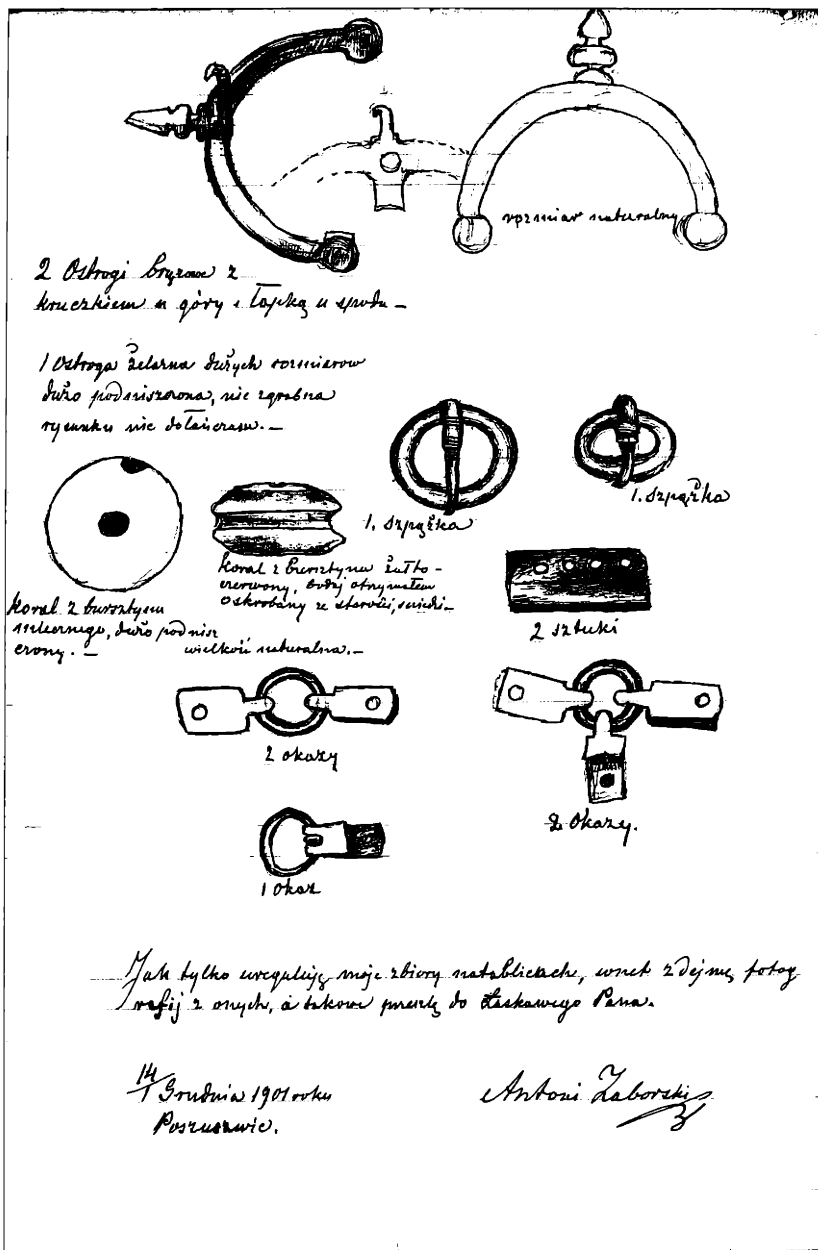 rozmiar naturalny
2 Ostrogi brązowe z
kruczkiem u góry i łapką u spodu –
1 Ostroga żelazna dużych rozmiarów
dużo podniszczona, nie zgrabna
rysunku nie dołańczam. –
1. szpążka
1. szpążka
koral z bursztynu
mlecznego, dużo podnisz
czony. –
koral z bursztynu żółto-
czerwony,
oskrobany ze starości,
wielkość naturalna. –
2 sztuki
2 okazy
2 okazy.
1 okaz
Jak tylko ureguluję moje zbiory natablicach, wnet zdejmę fotog
rafij z onych, a takowe prześlę do Łaskawego Pana.
14/1 Grudnia 1901 roku
Poszuszwie.
Antoni Zaborski